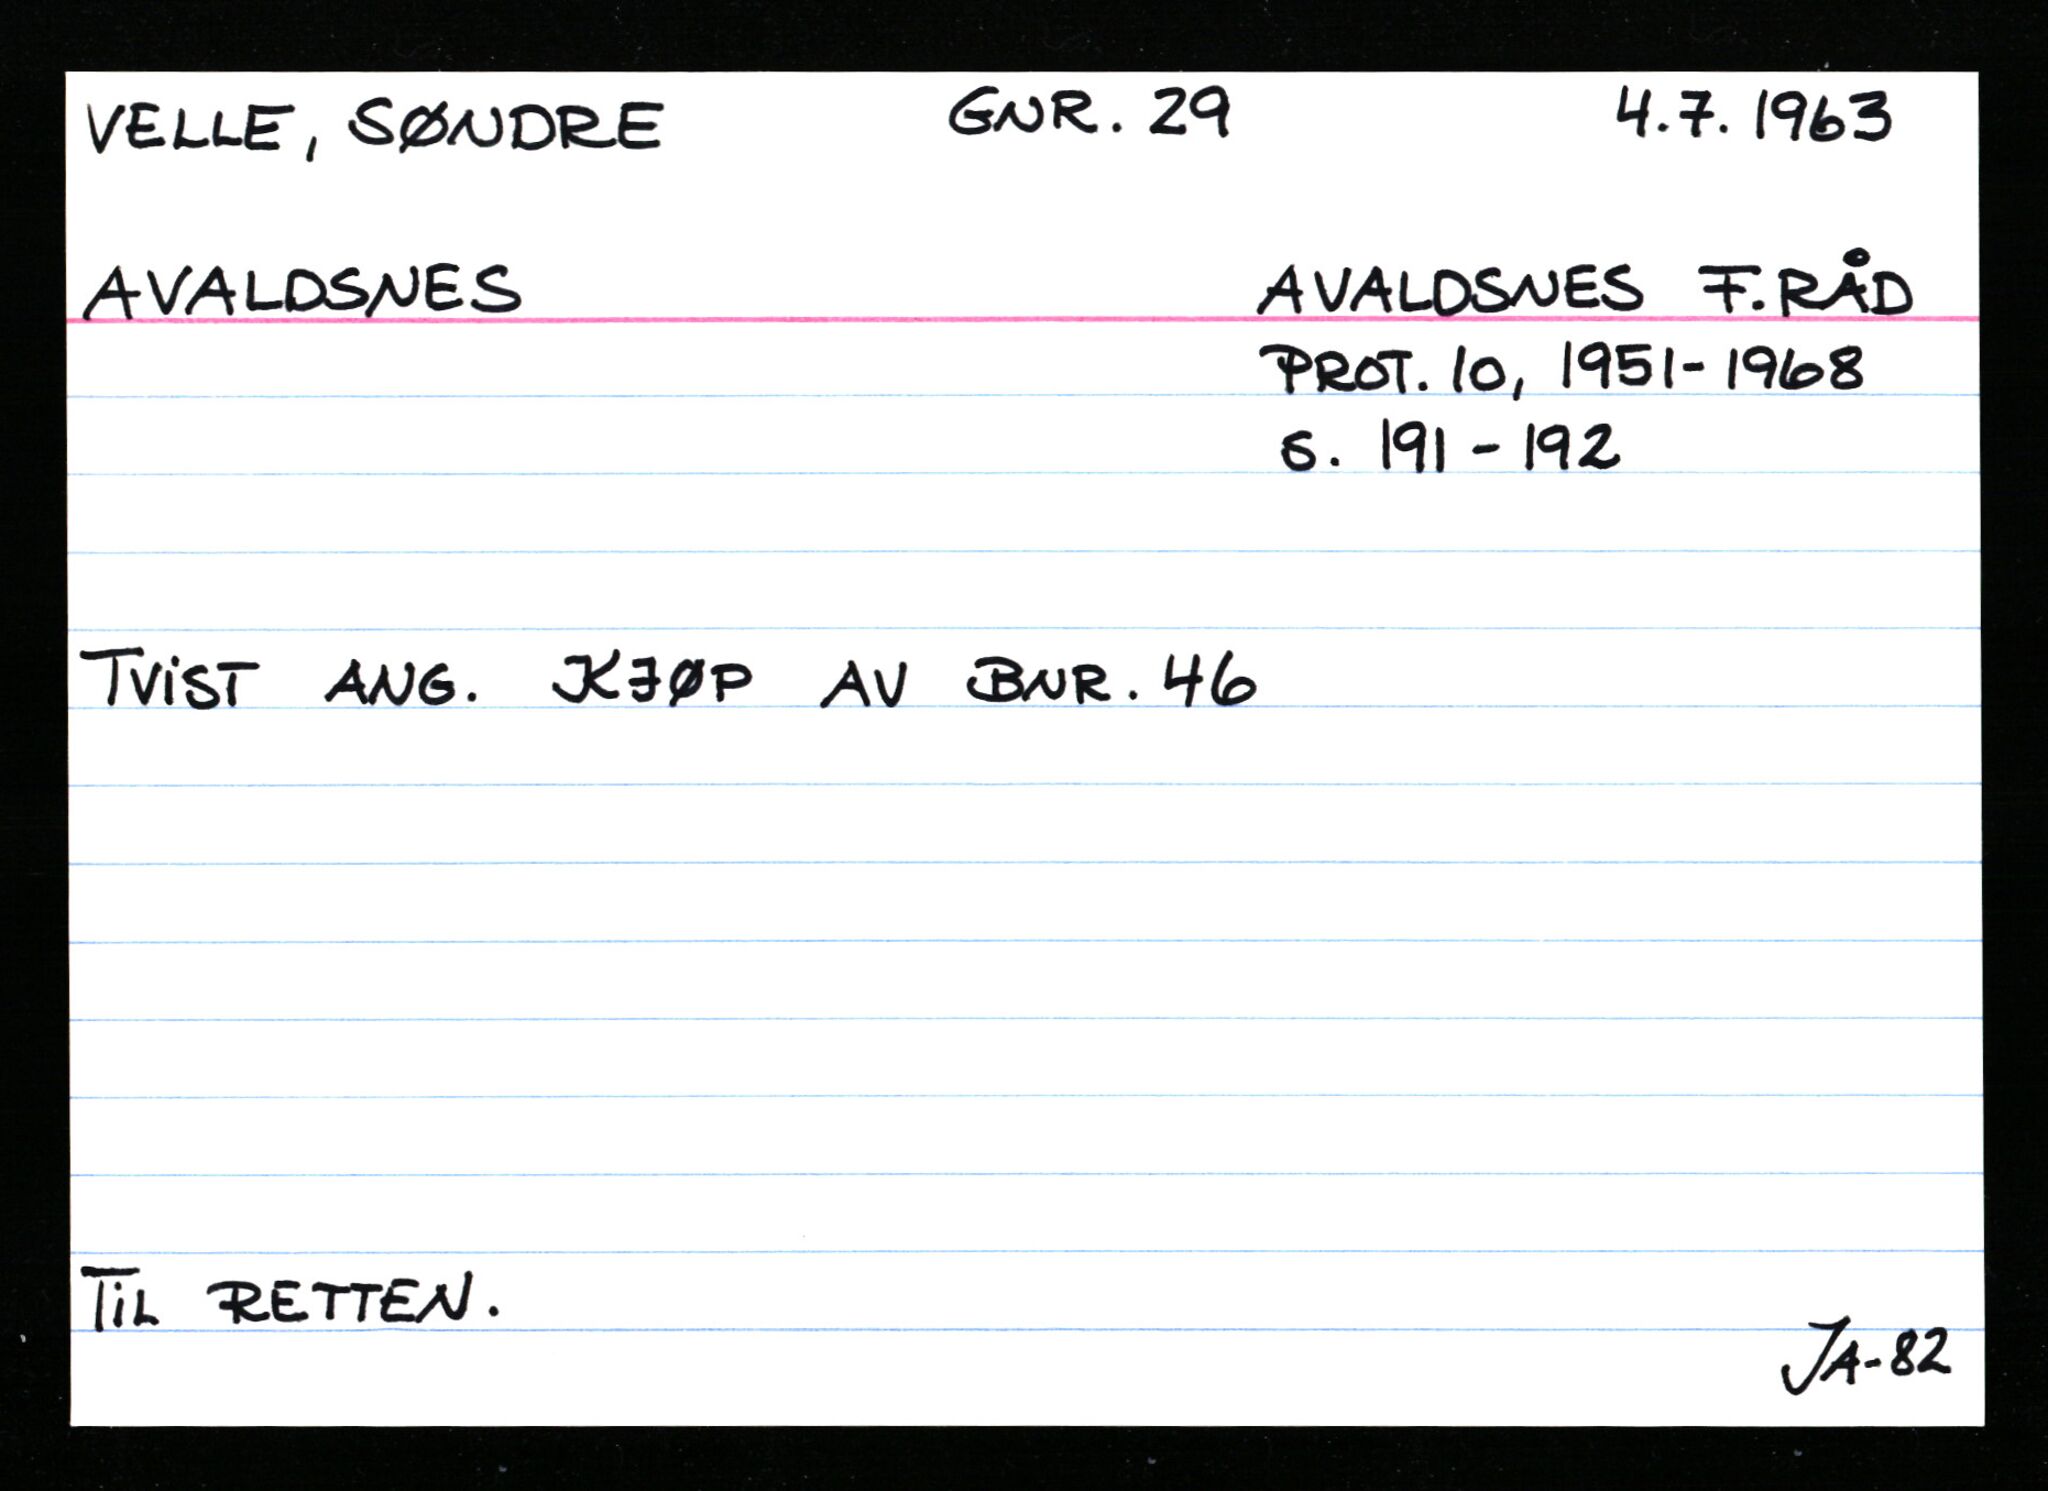 VELLE, SØNDRE GNR. 29 4.7.1963
AVALDSNES AVALDSNES F.RÅD
PROT. 10, 1951-1968
S. 191-192
TVIST ANG. KJØP AV BNR. 46
TIL RETTEN.
JA-82